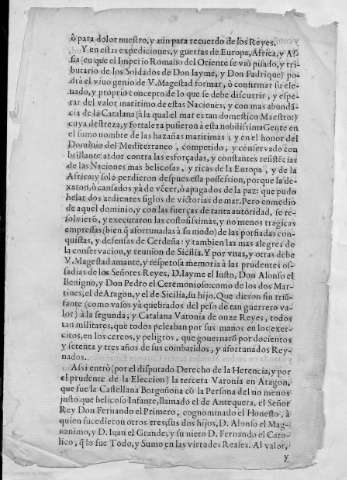 ò para dolor nuestro, y aùn para recuerdo de los Reyes.
Y en estas expediciones, y guerras de Europa, Africa, y Asia
(en que el Imperio Romano del Oriente se viò pisado, y tributario
de los Soldados de Don Jayme, y Don Fadrique)
el vivo genio de V. Magestad formar, ò confirmar su elevado,
y proprio concepto de lo que se debe discurrir, y esperar
del valor maritimo de estas Naciones, y con mas abondancia
de la Catalana (à la qual el mar es tan domestico Maestro)
cuya destreza, y fortaleza pusieron à esta nobilissima Gente en
el sumo nombre de las hazañas maritimas; y en el honor del
Dominio del Mediterraneo, competido, y conservado con
brillante ardor contra las esforçadas, y constantes resistencias
de las Naciones mas belicosas, y ricas de la Europa, y de la
Africa: y solo perdieron despues essa possession, porque
ò cansados yà de vẽcer, ò apagados de la paz: que pudo
helar dos ardientes siglos de victorias de mar. Pero en medio
de aquel dominio, y con las fuerças de tanta autoridad, se resolvieron,
y executaron las costosissimas, y no menos tragicas
empressas (bien q̃ afortunadas à su modo) de las porfiadas conquistas,
y defensas de Cerdeña: y tambien las mas alegres de
la conservacion, y reunion de Sicilia. Y por vnas, y otras debe
V. Magestad amante, y respetosa memoria à las prudentes ossadias
de los Señores Reyes, D. Jayme el Iusto, Don Alonso el
Benigno, y Don Pedro el Ceremonioso: como de los dos Martines,
el de Aragon, y el de Sicilia, su hijo. Que dieron fin triste
(como vasos yà quebrados del peso de tan guerrero valor)
à la segunda, y Catalana Varonía de onze Reyes, todos
tan militares, que todos peleaban por sus manos en los exercitos,
en los cercos, y peligros, que governarõ por docientos
y setenta y tres años de sus combatidos, y afortunados Reynados.
Assi entrò (por el disputado Derecho de la Herencia, y por
el prudente de la Eleccion) la tercera Varonía en Aragon,
que fue la Castellana Borgoñona cõ la Persona del no menos
justo que belicoso Infante, llamado el de Antequera, el Señor
Rey Don Fernando el Primero, cognominado el Honesto, à
quien sucedieron otros tres: sus dos hijos, D. Alonso el Magnanimo,
y D. Iuan el Grande, y su nieto D. Fernando el Catolico,
q̃ lo fue Todo, y Sumo en las virtudes Reales. Al valor,
y